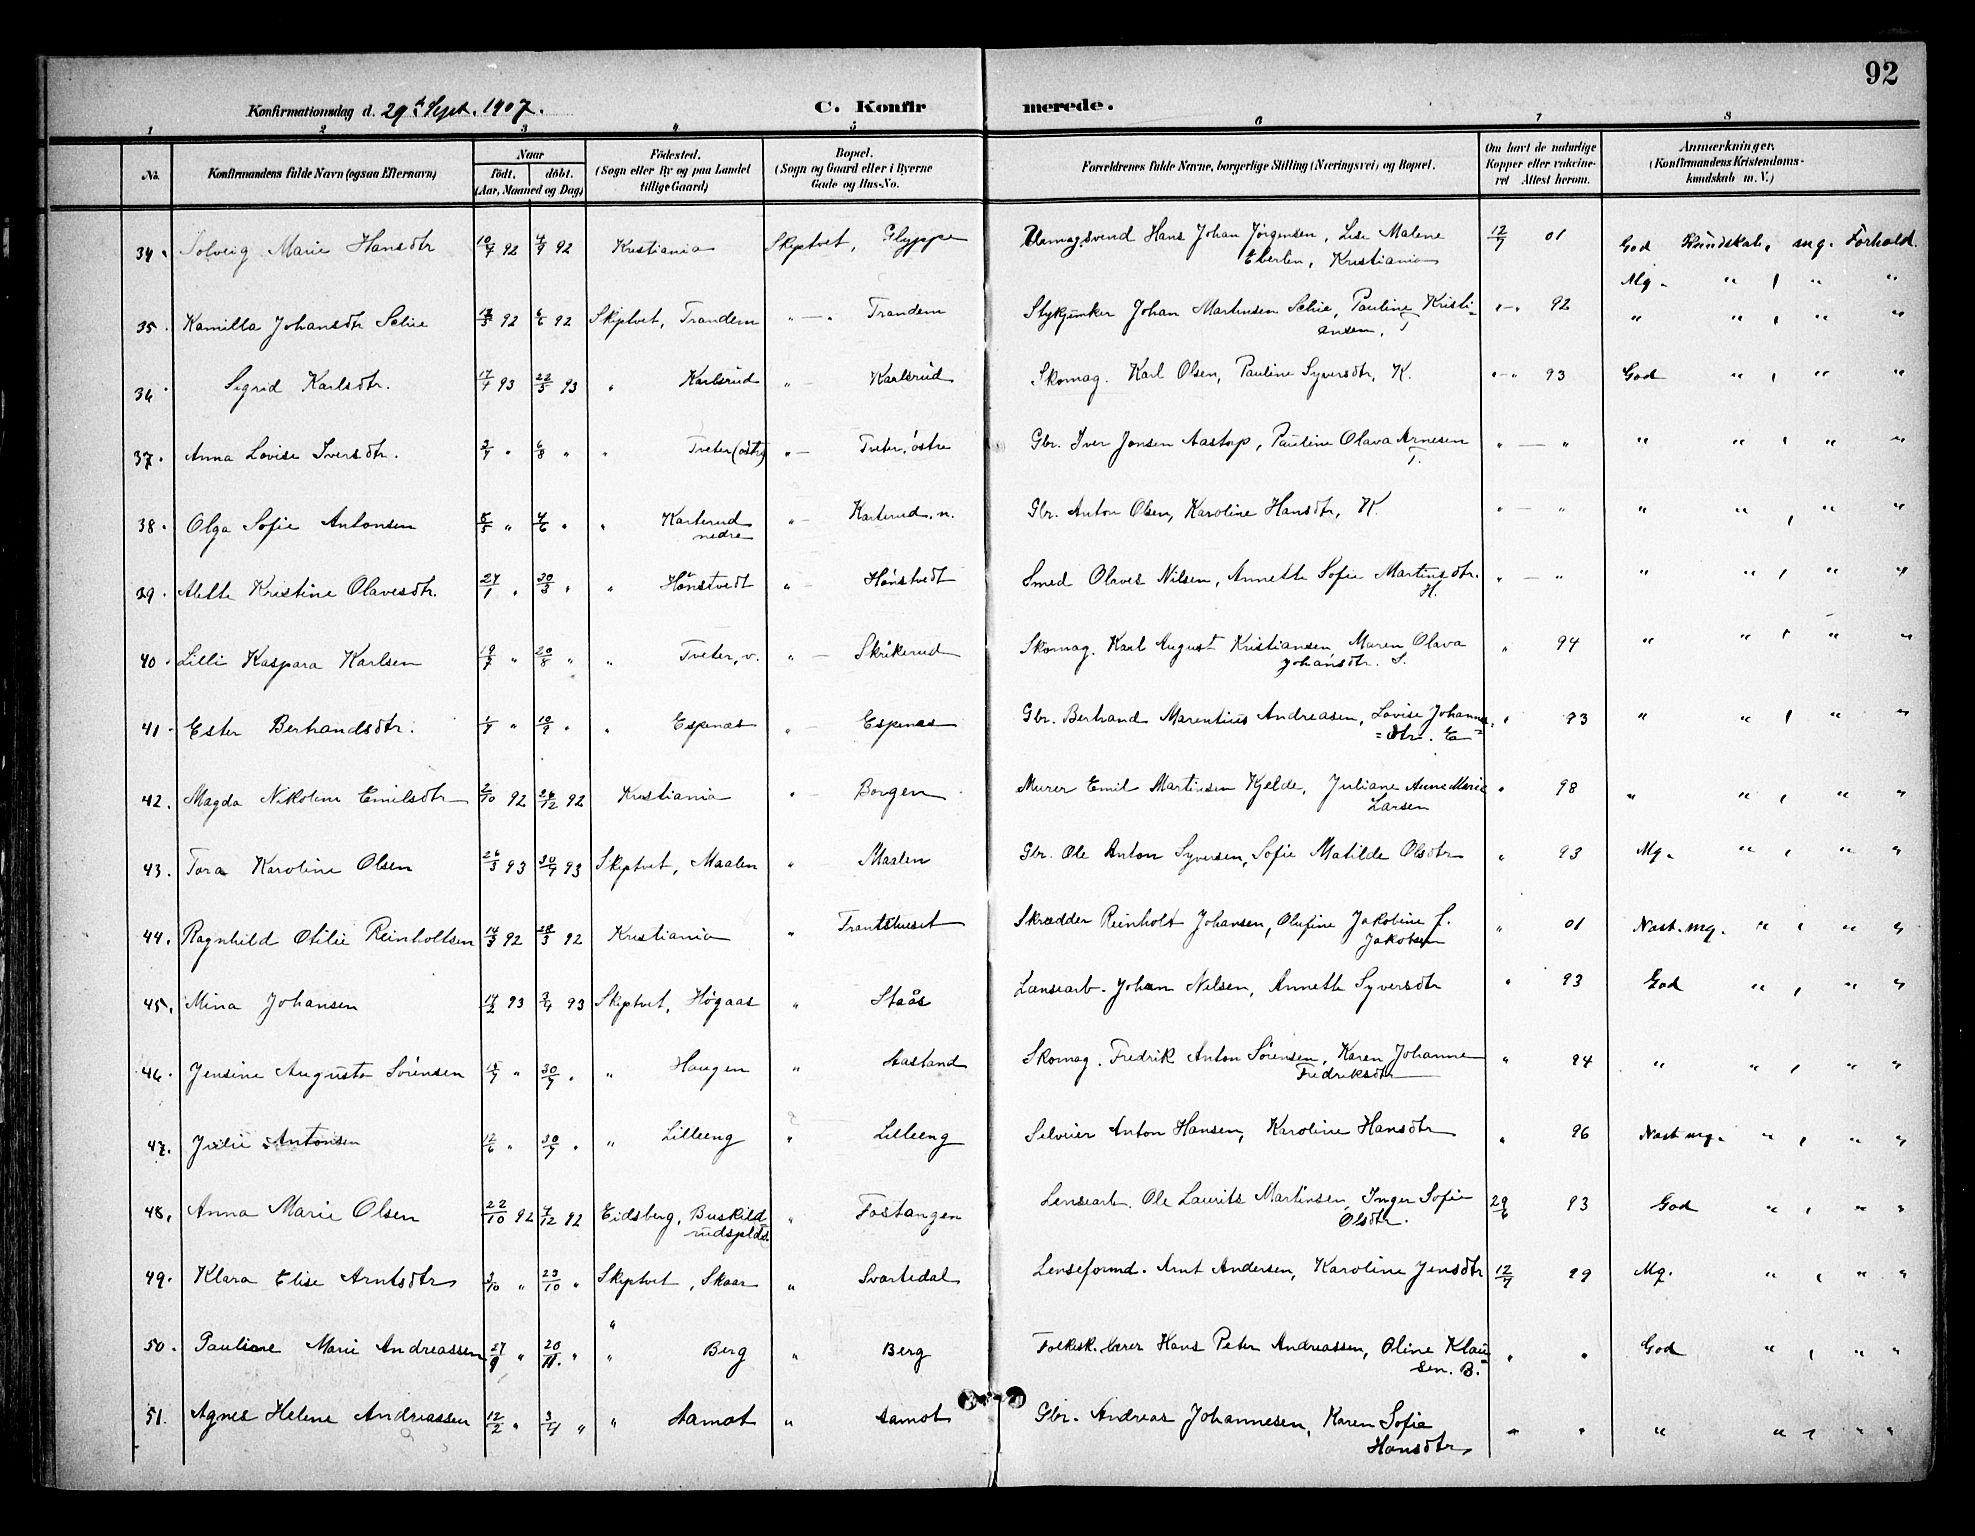 92
Konfirmationsdag d. 29de Sept. 1907.
C. Konfirmerede.
1 2 3 4 5 6 7 8
No. Konfirmandens fulde Navn (ogsaa Efternavn) Naar født. døbt. (Aar, Maaned og Dag) Fødested. (Sogn eller By og paa Landet tillige Gaard) Bopæl. (Sogn og Gaard eller i Byerne Gade og Hus-No. Forældrenes fulde Navne, borgerlige Stilling (Næringsvei) og Bopæl. Om havt de naturlige Kopper eller vaccineret Attest herom. Anmærkninger. (Konfirmandens Kristendomskundskab m. V.)
34. Solveig Marie Hansdtr 10/7 92 4/9 92 Kristiania Skiptvet, Glyppe Hans Johan Jørgensen, Lise Malene Eberlen, Kristiania 12/7 01 God Kundskab, mg. Forhold.
Mg. " , " "
35. Kamilla Johansdtr Schie 92 6/6 92 Skiptvet, Trandem " — " Trandem Stykjunker Johan Martinsen Schie, Pauline Kristiansen, T " - " 92 " " , " "
36. Sigrid Karlsdtr. 17/4 93 22/5 93 " Karlsrud " — Karlsrud Skomag. Karl Olsen, Pauline Syversdtr, K. " - " 93 God " , " "
37. Anna Lovise Iversdtr. 2/7 " 6/8 " " Tveter (østre) " — Tveter, østre Gbr. Iver Jonsen Aastorp, Pauline Olava Arnesen T. " — " " " , " "
38. Olga Sofie Antonsen 5/5 " 4/6 " " Karterud nedre " — Karterud, n. Gbr. Anton Olsen, Karoline Hansdtr, K. " — " " " , " "
39. Alette Kristine Olavesdtr. 27/1 " 30/3 " " Hønstvedt " — Hønstvedt Smed Olaves Nilsen, Annette Sofie Martinsdtr. H. " — " " " , " "
40. Lilli Kaspara Karlsen 19/7 " 20/8 " " Tveter, v. " — Skrikerud Skomag. Karl August Kristiansen, Maren Olava Johansdtr. S. " 94 " " , " "
41. Ester Bertrandsdtr. 1/7 " 10/9 " " Espenæs " — Espenæs Gbr. Bertrand Marentius Andreasen, Lovise Johannesdtr. E " 93 " " , " "
42. Magda Nikoline Emilsdtr 2/10 92 26/12 92 Kristiania " Borgen Murer Emil Martinsen Kjelde, Juliane Anne Marie Larsen " 98 " " , " "
43. Tora Karoline Olsen 26/3 93 30/7 93 Skiptvet, Maalen " Maalen Gbr. Ole Anton Syversen, Sofie Matilde Olsdtr " 93 Mg. " , " "
44. Ragnhild Otilie Reinholtsen 14/3 92 28/3 92 Kristiania " Trantshuset Skrædder Reinholt Johansen, Olufine Jakobine J. Jakobsen " 01 Næst. mg. " , " "
45. Mina Johansen 14/2 93 3/4 93 Skiptvet, Høgaas " Staås Lænsearb. Johan Nilsen, Annette Syversdtr " 93 God " , " "
46. Jensine Augusta Sørensen 15/7 " 30/7 " " Haugen " Aastand Skomag. Fredrik Anton Sørensen, Karen Johanne Fredriksdtr " 94 " " , " "
47. Julie Antonsen 12/6 " 30/7 " " Lilleeng " Lilleeng Selveier Anton Hansen, Karoline Hansdtr " 96 Næst mg. " , " "
48. Anna Marie Olsen 22/10 92 4/12 92 Eidsberg, Buskildrudsplds. " Fostangen Lensearb. Ole Laurits Martinsen, Inger Sofie Olsdtr. 29/6 93 God " , " "
49. Klara Elise Arntsdtr 3/10 " 23/10 " Skiptvet, Skaar " Svartedal Lenseformd. Arnt Andersen, Karoline Jensdtr 12/7 99 Mg. " , " "
50. Pauline Marie Andreassen 27/9 " 20/11. " " Berg " Berg Folkesk. lærer Hans Peter Andreassen, Oline Klausen. B. " " God " , " "
51. Agnes Helene Andreassen 12/2 " 3/4 " " Aamot " Aamot Gbr. Andreas Johannesen, Karen Sofie Hansdtr, " " " " , " "